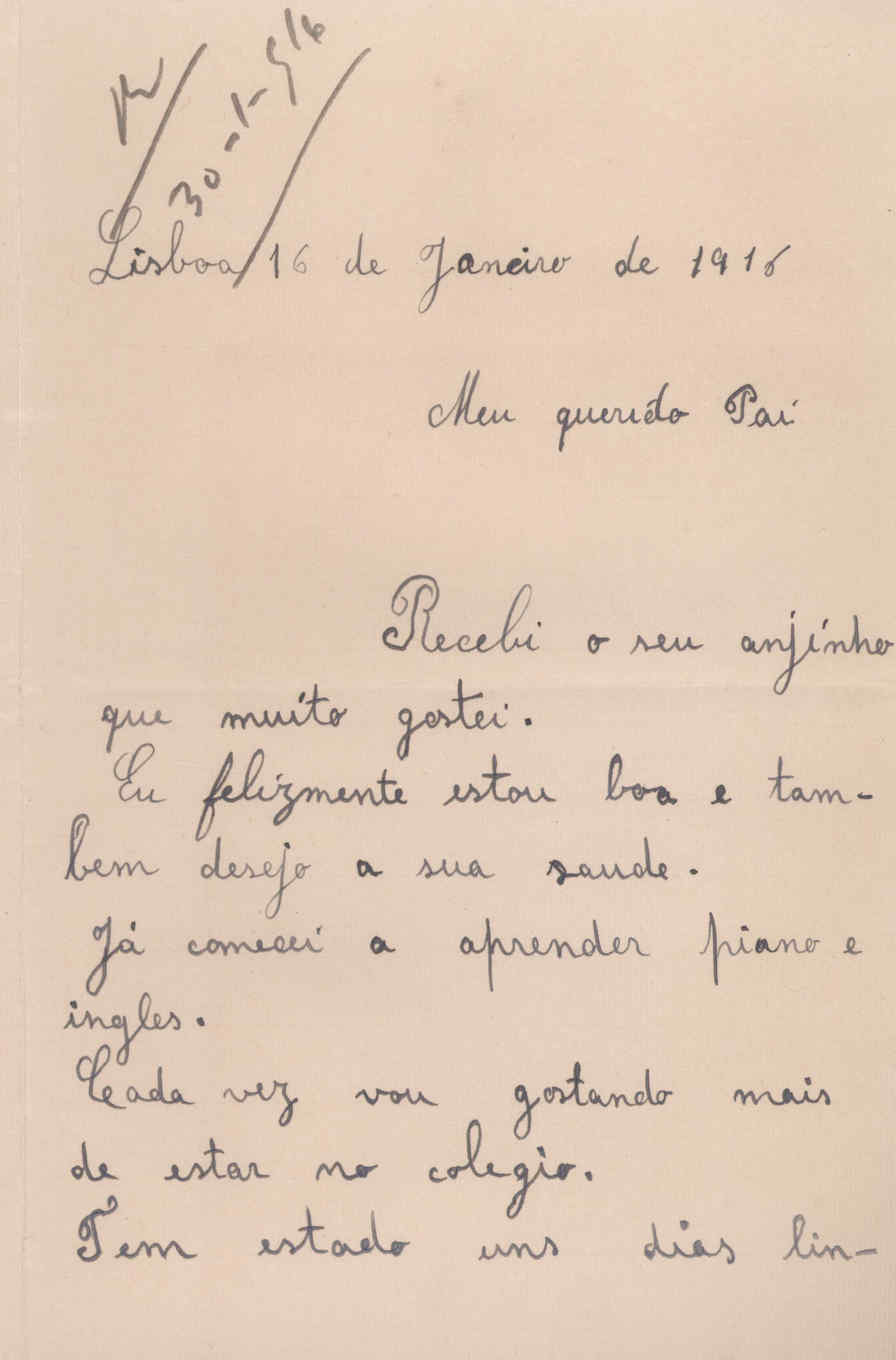 30-1-916
Lisboa 16 de Janeiro de 1916
Meu querido Pai
Recebi o seu anjinho
que muito gostei.
Eu felizmente estou boa e tam-
bem desejo a sua saude.
Já comecei a aprender piano e
ingles.
Cada vez vou gostando mais
de estar no colegio.
Tem estado uns dias lin-